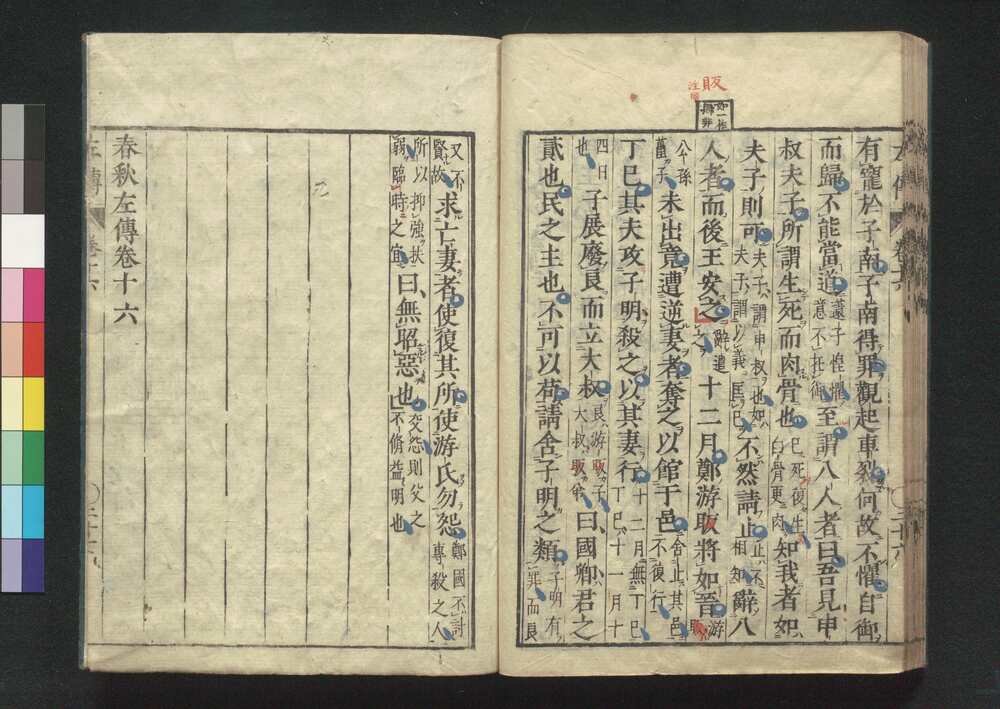 販
注同
有寵於子南子南得罪觀起車裂何故不懼自御
而歸不能當道薳子惶懼意不在御至謂八人者曰吾見申
叔夫子所謂生死而肉骨也已死復生白骨更肉知我者如
夫子則可夫子謂申叔也如夫子謂以義匡已不然請止止不相知辭八
人者而後王安之辭遣之十二月鄭游販將如晉游販
公孫蠆子未出竟遭逆妻者奪之以館于邑舍止其邑不復行
丁巳其夫攻子明殺之以其妻行十二月無丁巳丁巳十一月十
四日也子展廢良而立大叔良游販子大叔販弟曰國卿君之
貳也民之主也不可以苟請舍子明之類子明有罪而良
又不賢故求亡妻者使復其所使游氏勿怨鄭國不討專殺之人
所以抑強扶弱臨時之宜曰無昭惡也交怨則父之不脩益明也
春秋左傳卷十六